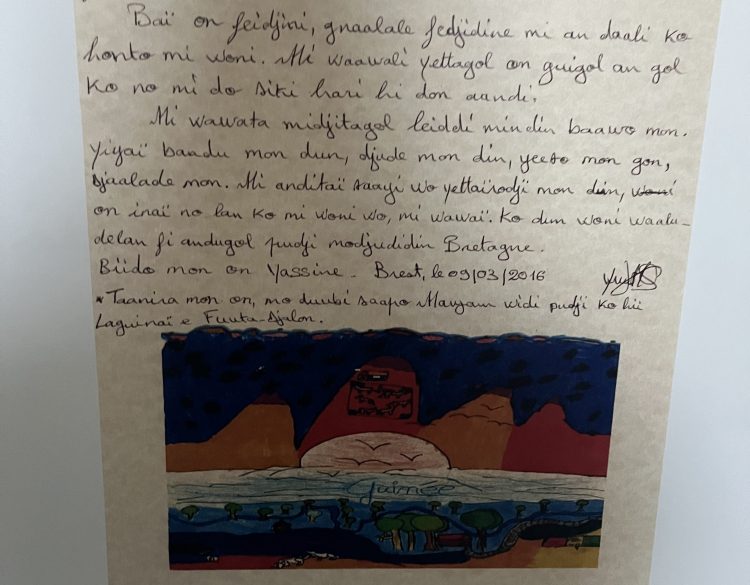 Baï on feidjini, gnaalale fedjidine mi an daali ko
honto mi woni. Mi waawali yettagol on guigol an gol
ko no mi do siki hari hi don aandi.
Mi wawata midjitagol leiddi min din baawo mon.
Yiyaï baadu mon dun, djude mon din, yeeso mon gon,
djaalade mon. Mi anditaï saayi wo yettaïrodji mon din, woni
on inaï no lan ko mi woni wo, mi wawaï. Ko dun woni waalu-
delan fi andugol pudji modjudidin Bretagne.
Biido mon on Yassine - Brest, le 09/03/2016
* Taanira mon on, mo duubi saapo Maryam widi pudji ko hii
Laguinaï e Fuuta-Djalon.
Guinée